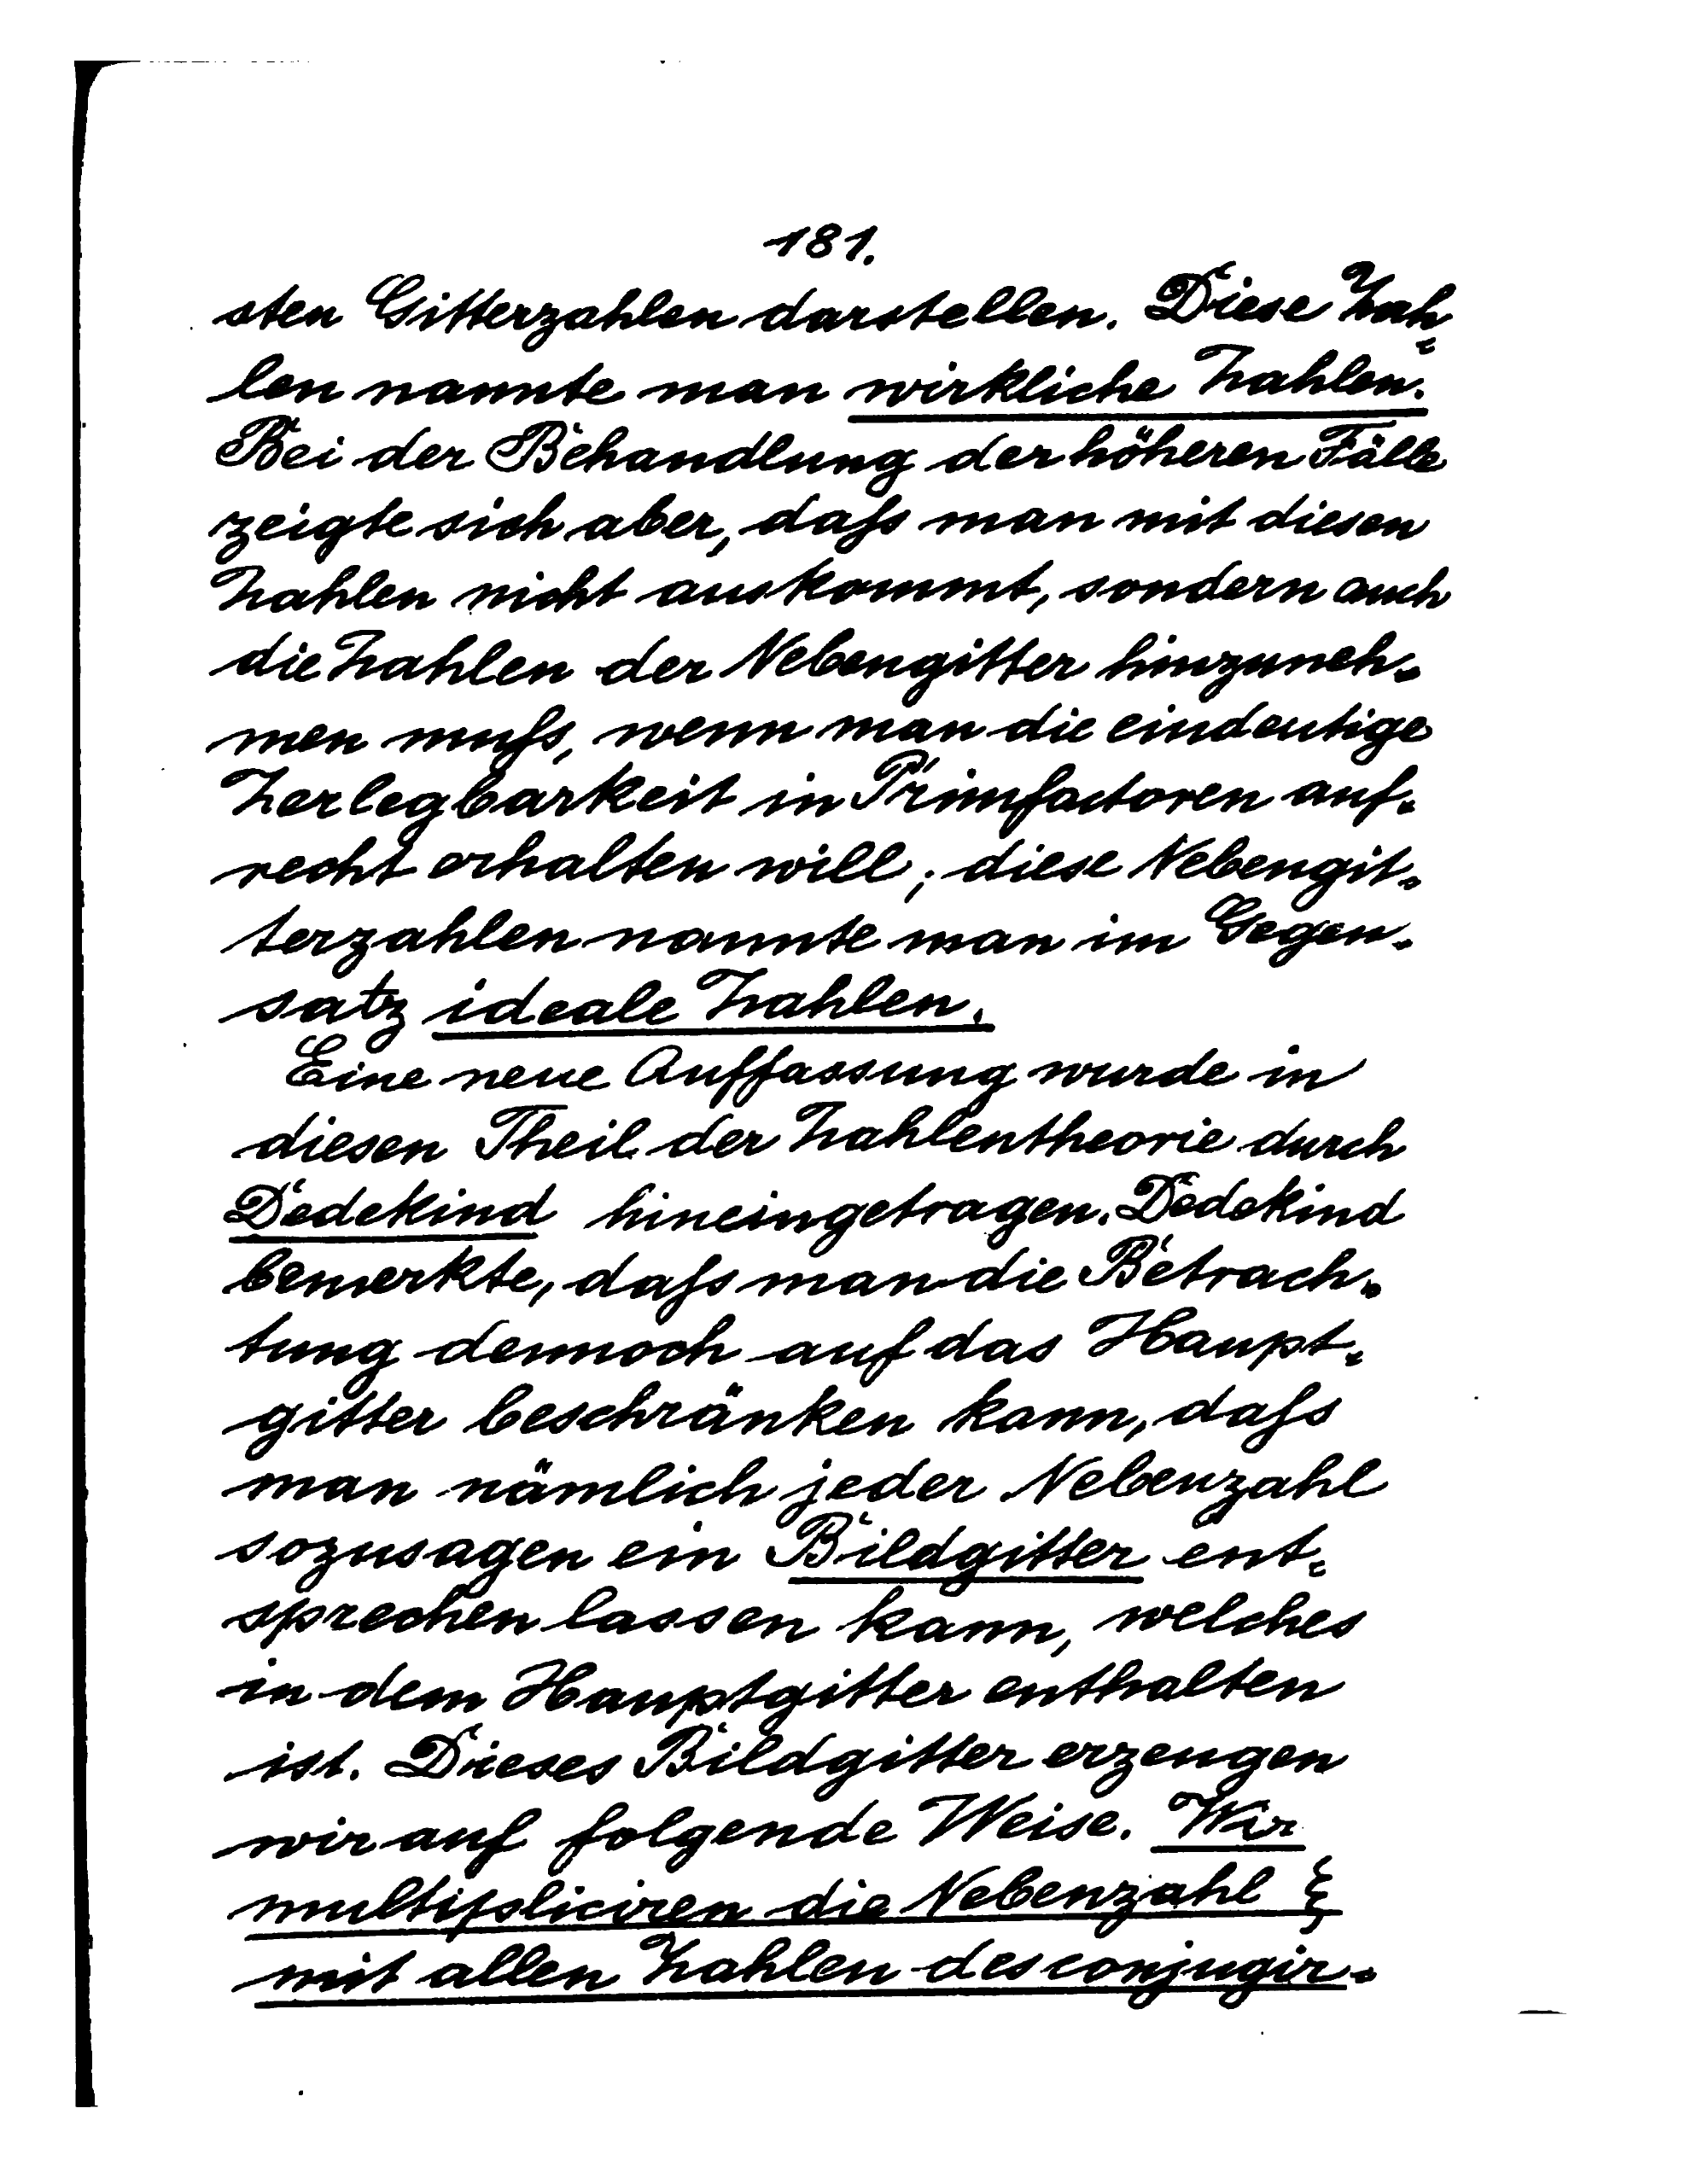 181.
sten Gitterzahlen darstellen. Diese Zah-
len nannte man wirkliche Zahlen.
Bei der Behandlung der höheren Fälle
zeigte sich aber, dafs man mit diesen
Zahlen nicht auskommt, sondern auch
die Zahlen der Nebengitter hinzuneh-
men mufs, wenn man die eindeutige
Zerlegbarkeit in Primfactoren auf-
recht erhalten will; diese Nebengit-
terzahlen nannte man im Gegen-
satz ideale Zahlen.
Eine neue Auffassung wurde in
diesen Theil der Zahlentheorie durch
Dedekind hineingetragen. Dedekind
bemerkte, dafs man die Betrach-
tung dennoch auf das Haupt-
gitter beschränken kann, dafs
man nämlich jeder Nebenzahl
sozusagen ein Bildgitter ent-
sprechen lassen kann, welches
in dem Hauptgitter enthalten
ist. Dieses Bildgitter erzeugen
wir auf folgende Weise. Wir
multipliciren die Nebenzahl ξ
mit allen Zahlen des conjugir-